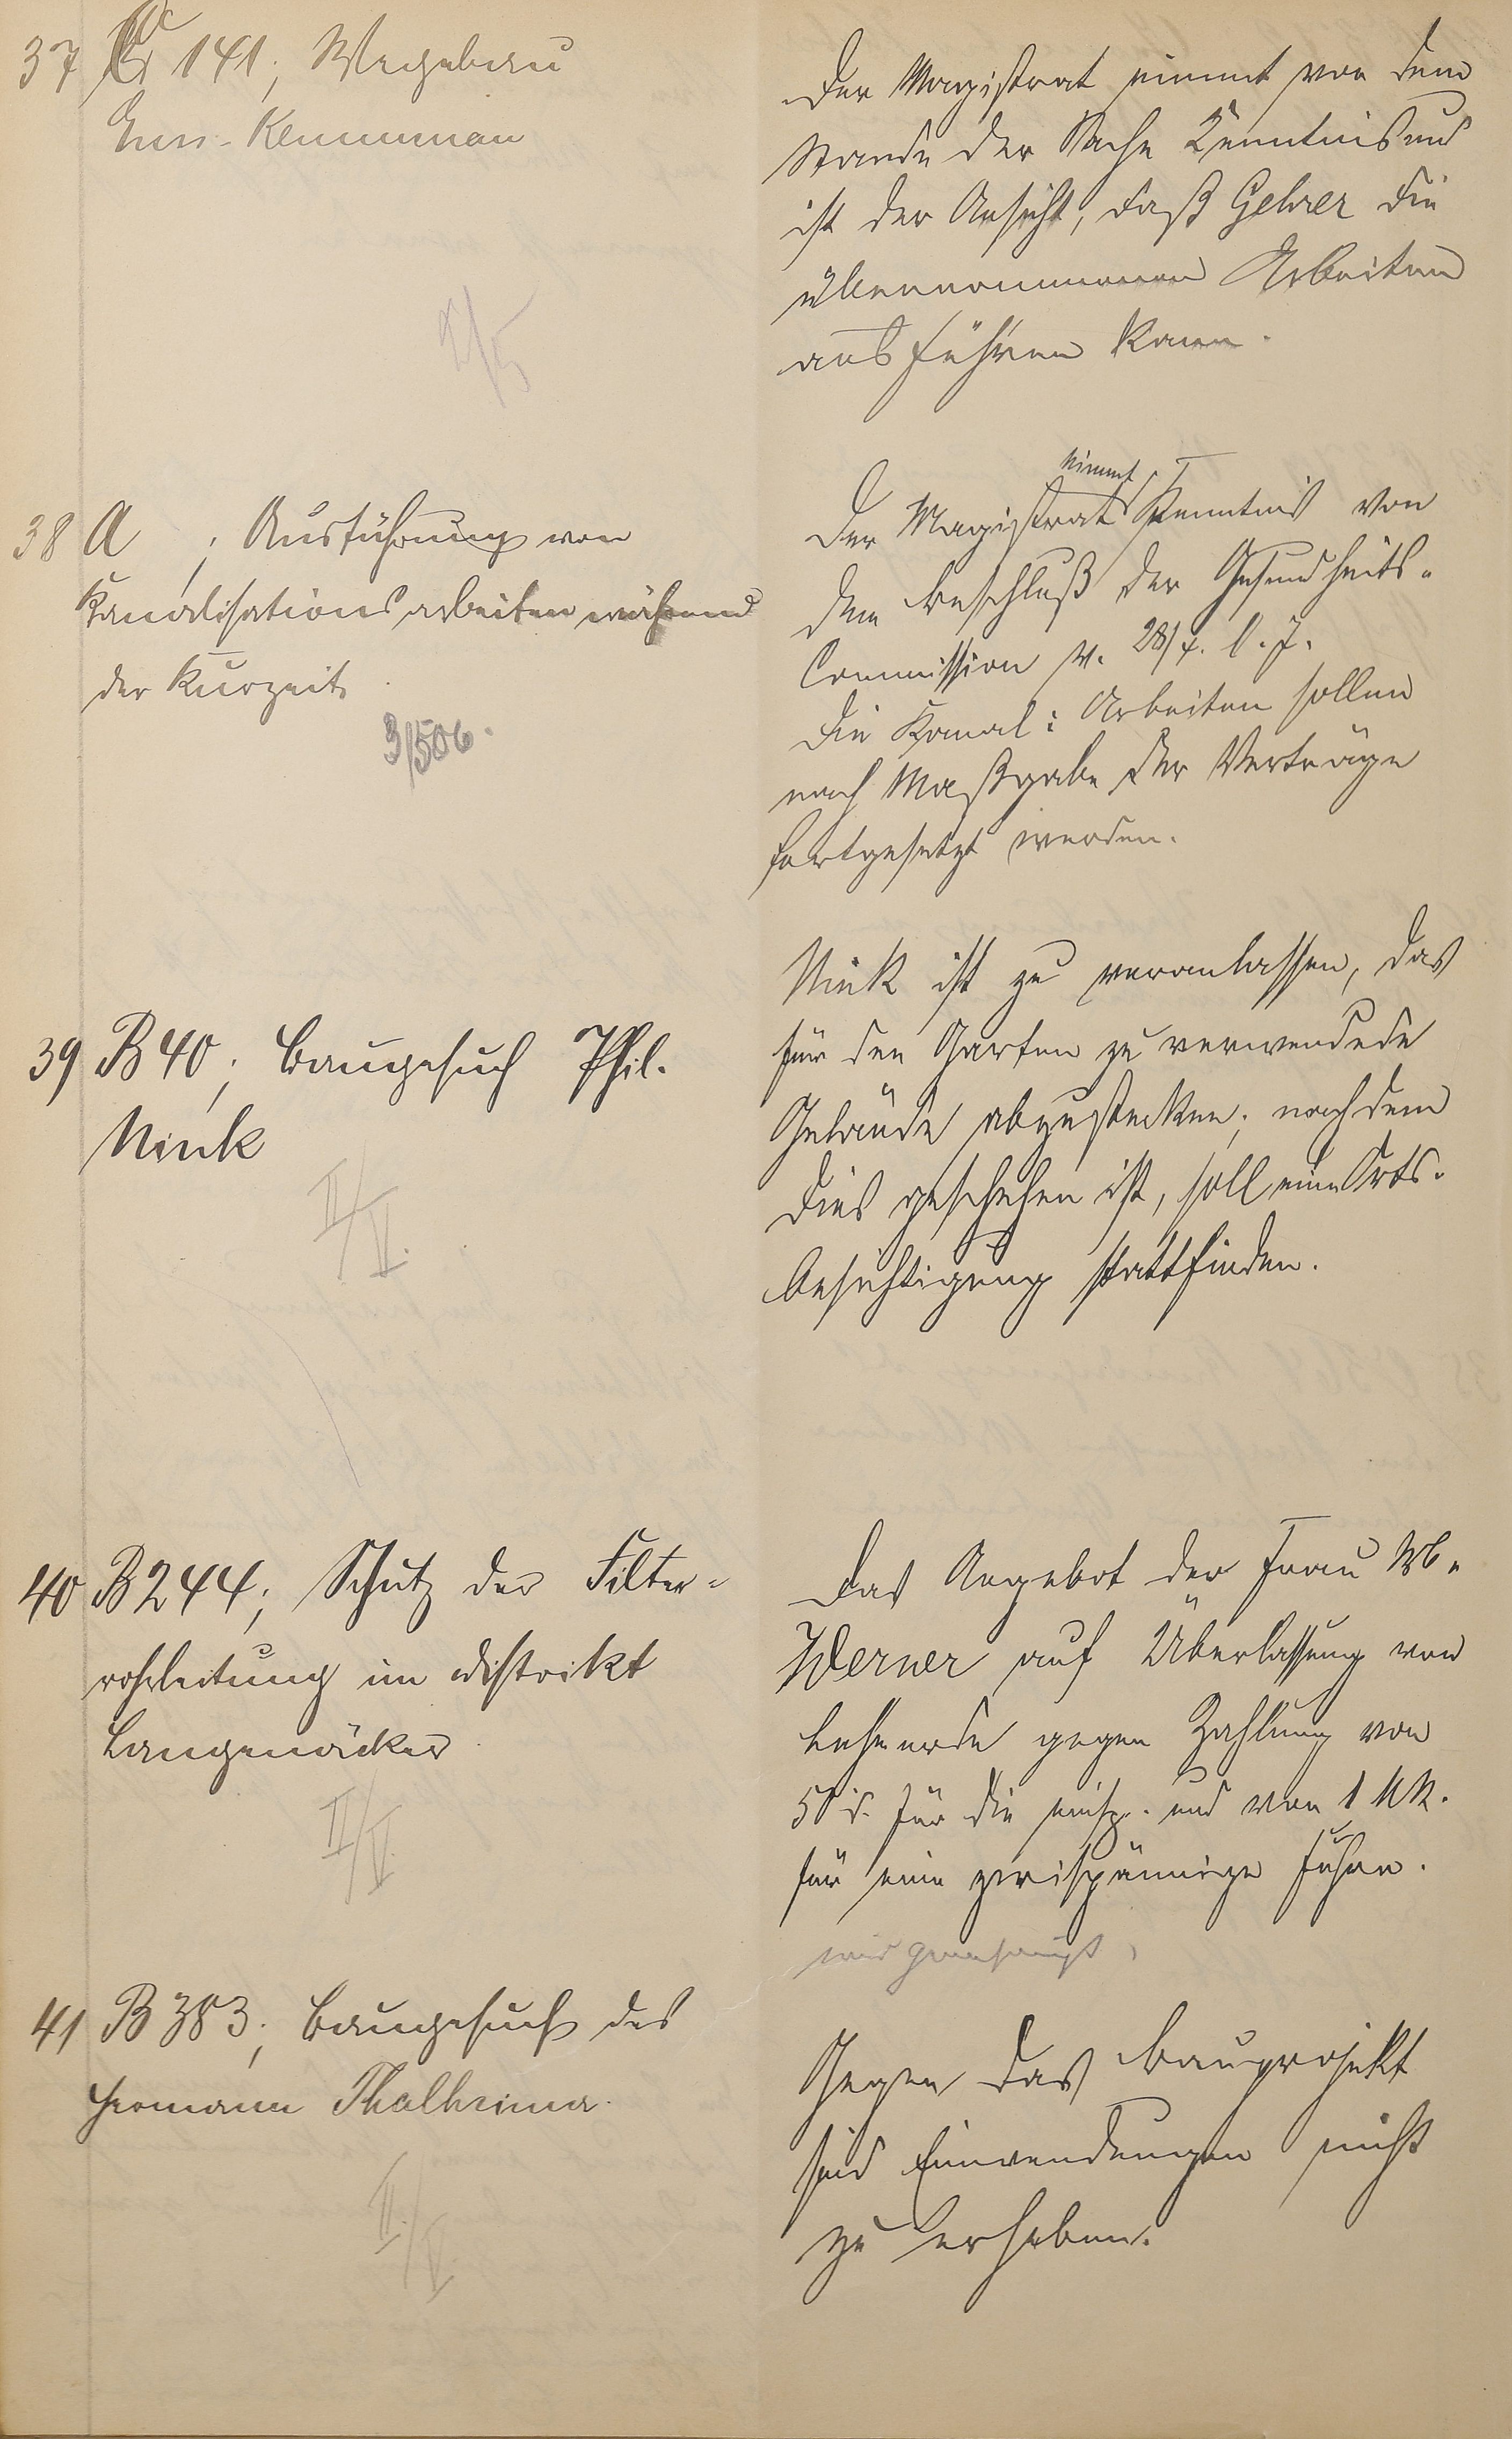 37 C 141; Wegebau
Ems-Kemmenau
Der Magistrat nimmt von dem
Stande der Sache Kenntnis und
ist der Ansicht, daß Gehrer die
übernommenen Arbeiten
ausführen kann.
2/5
38 A ; Ausführung von
Kanalisationsarbeiten während
der Kurzeit.
3/5 06.
Der Magistrat nimmt Kenntnis von
dem Beschluß der Gesundheits-
Commission v. 28/4. l. J.
Die Kanal: Arbeiten sollen
nach Maßgabe der Verträge
fortgesetzt werden.
39 B 40; Baugesuch Phil.
Nink
II/V.
Nink ist zu veranlassen, das
für den Garten zu verwendede
Gelände abzustecken; nachdem
dies geschehen ist, soll eine Orts-
besichtigung stattfinden.
40 B 244; Schutz der Filter-
rohrleitung im Distrikt
Langenäcker
II/V.
Das Angebot der Frau Wb.
Werner auf Überlassung von
Lehmerde gegen Zahlung von
50 d. für die einsp. und von 1 Mk.
für eine zweispännige Fuhre.
wird genehmigt,
41 B 383; Baugesuch des
Hermann Thalheimer.
II/V.
Gegen das Bauprojekt
sind Einwendungen nicht
zu erheben.